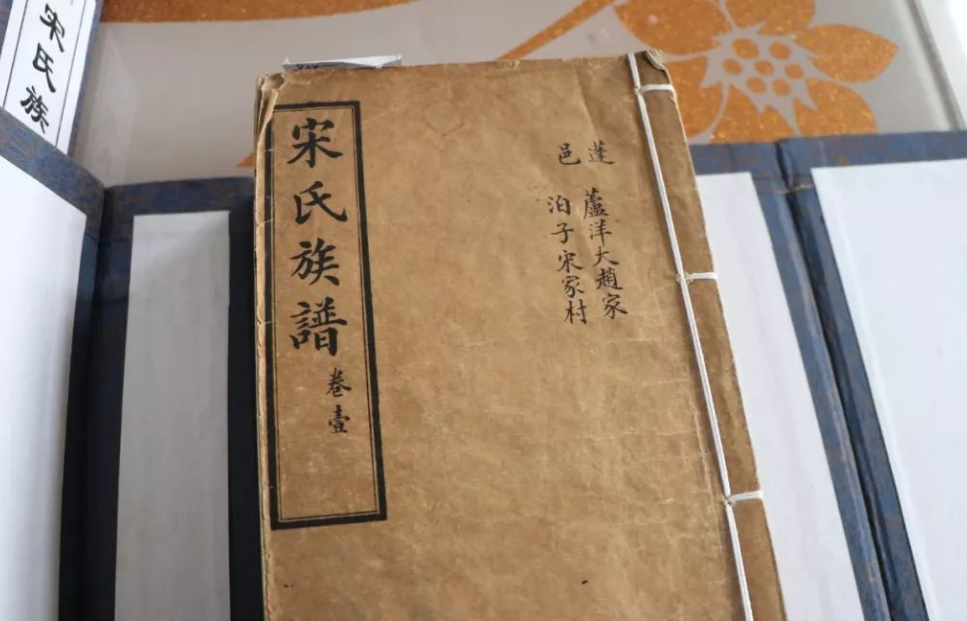 宋氏族譜
卷壹
蓬 蘆洋大趙家
邑 泊子宋家村
宋氏族